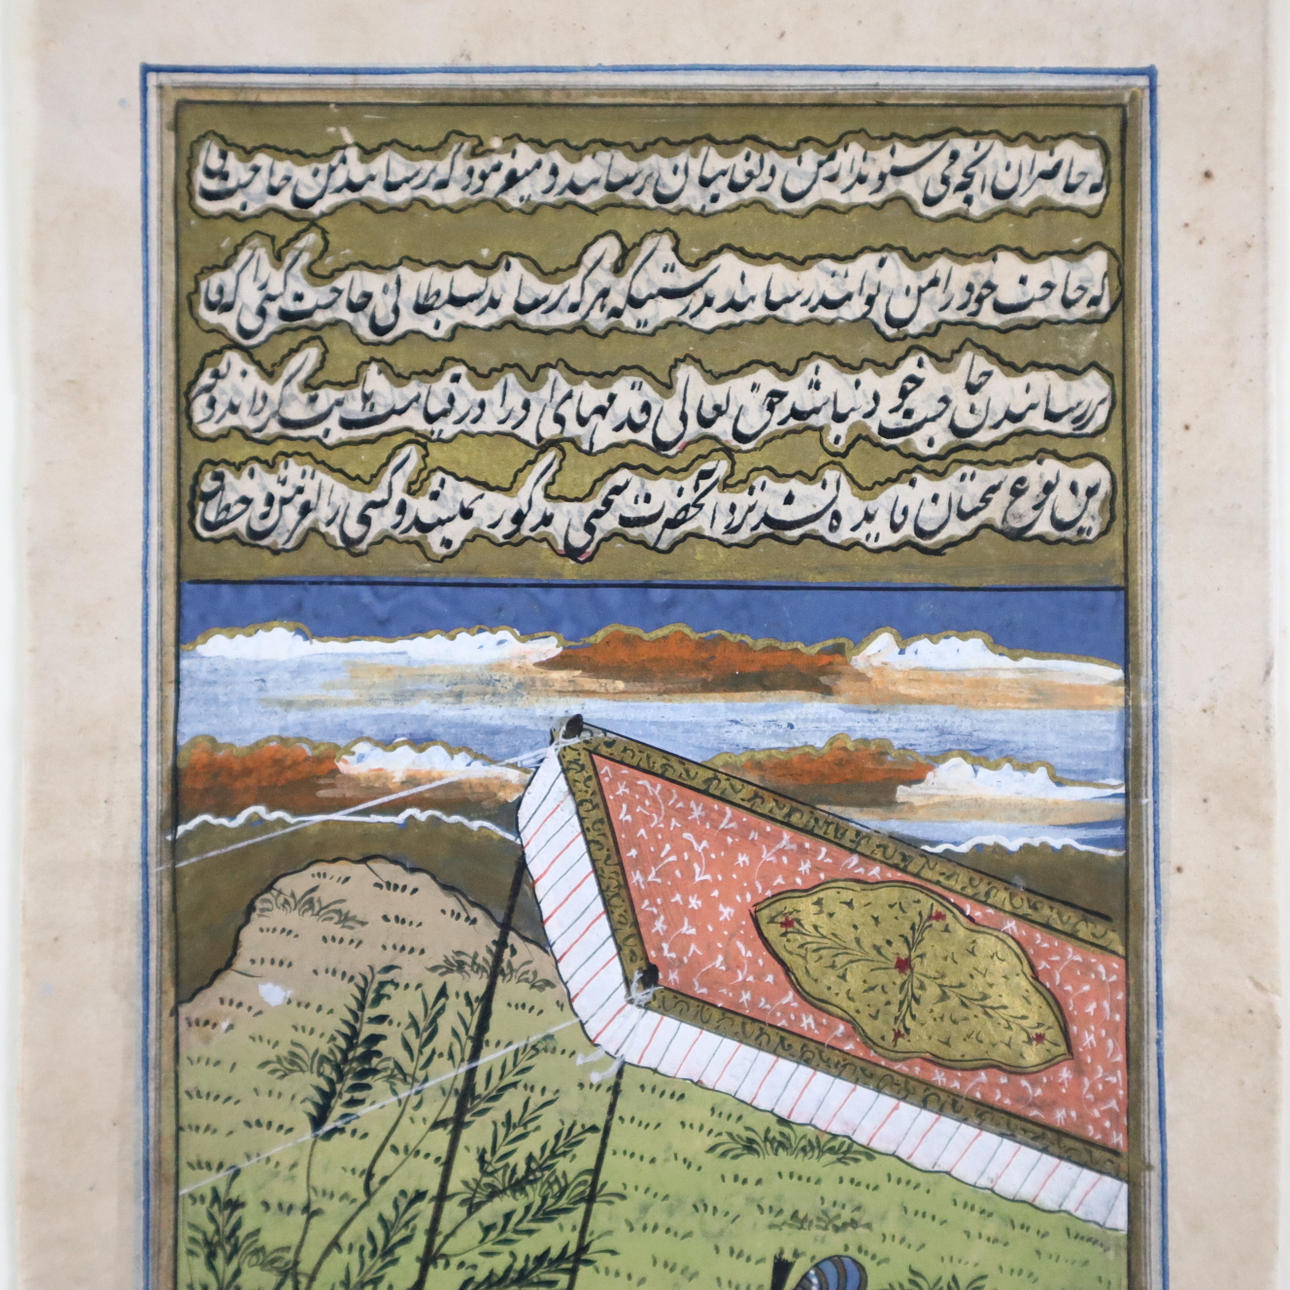 که حاضران آنچه می شنوند از من و بغایبان برسانند و میفرمود که برسانند بمن حاجت ها
که حاجت خود را بمن نتوانند رسانند بدرستیکه هر که برساند بسلطانی حاجت کسی را که قا
بر رسانیدن حاجت خود نباشد حق تعالی قدمهای او را در قیامت ثابت گرداند و بغیر
این نوع سخنان فایده مند نزد آنحضرت سخنی مذکور نمیشد و کسی را لغزش و خطا